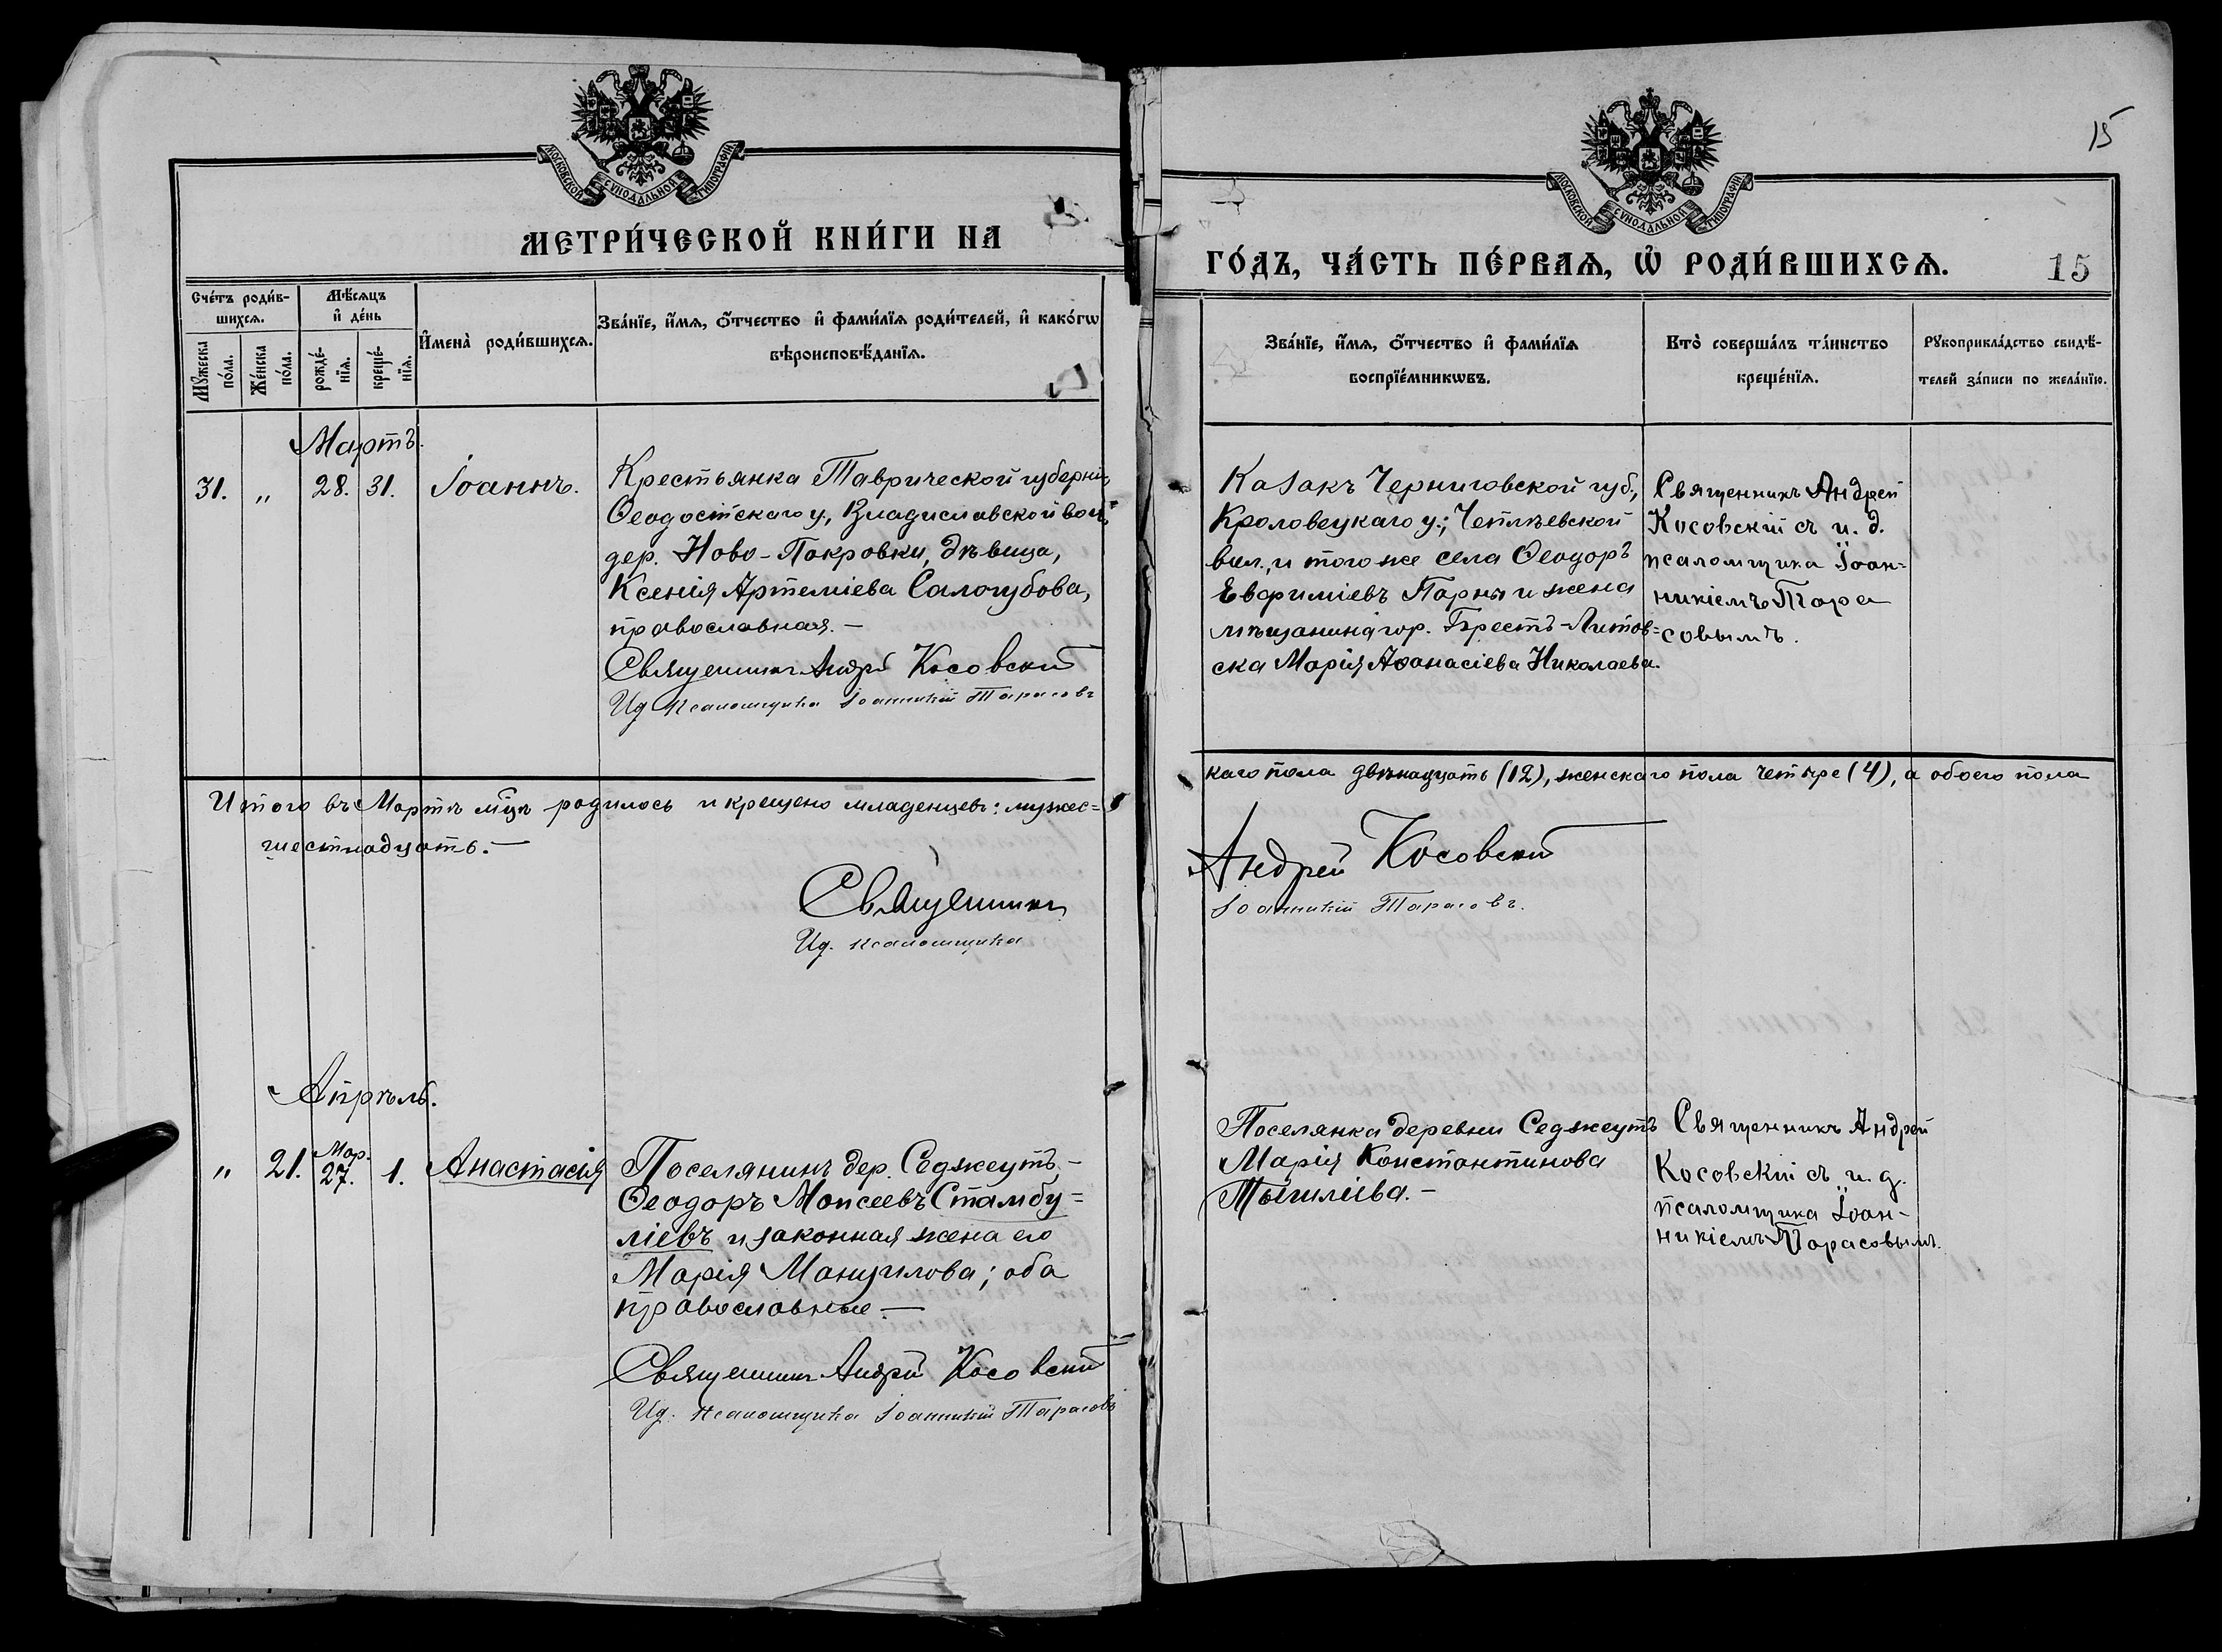 МОСКОВСКОЙ СУНОДАЛЬНОЙ ТИПОГРАФІИ
МЕТРИ́ЧЕСКОЙ КНИ́ГИ НА
Сче́тъ роди́в-
шихсѧ.
Мѣ́сѧцъ
и҆ де́нь
И҆мена̀ роди́вшихсѧ.
Зва́нїе, и҆́мѧ, ѻ҆́тчество и҆ фами́лїѧ роди́телей, и҆ како́гѡ
вѣроисповѣ́данїѧ.
Мꙋ́жеска
по́ла.
Же́нска
по́ла.
рожде́-
нїѧ.
креще́-
нїѧ.
Мартъ.
31. „ 28. 31. Іоаннъ.
Крестьянка Таврической губерніи,
Ѳеодосійскаго у., Владиславской вол.,
дер. Ново-Покровки, дѣвица,
Ксенія Артеміева Салогубова,
православная.—
Священникъ Андрей Косовскій
И д Псаломщика Іоанникій Тарасовъ
Итого въ Мартѣ мцѣ родилось и крещено младенцевъ: мужес=
шестнадцать.—
Священникъ
И д. псаломщика
Апрѣль.
„ 21. Мар. 27. 1. Анастасія
Поселянинъ дер. Седжеутъ—
Ѳеодоръ Моисеевъ Стамбу=
ліевъ и законная жена его
Марія Мануилова; оба
православные—
Священникъ Андрей Косовскій
И д. Псаломщика Іоанникій Тарасовъ
15
МОСКОВСКОЙ СУНОДАЛЬНОЙ ТИПОГРАФІИ
ГО́ДЪ, ЧА́СТЬ ПЕ́РВАѦ, Ѡ҆ РОДИ́ВШИХСѦ. 15
Зва́нїе, и҆́мѧ, ѻ҆́тчество и҆ фами́лїѧ
воспрїе́мникѡвъ.
Кто̀ соверша́лъ та́инство
креще́нїѧ.
Рꙋкоприкла́дство свидѣ́-
телей за́писи по жела́нїю.
Казакъ Черниговской губ.,
Кроловецкаго у.,
вол., и того же села Ѳеодоръ
Евфиміевъ и жена
мѣщанина гор. Брестъ-Литов=
ска Марія Аѳанасіева Николаева.
Священникъ Андрей
Косовскій съ и. д.
псаломщика Іоан=
никіемъ Тара
совымъ.
каго пола двѣнадцать (12), женскаго пола четыре (4), а обоего пола
Андрей Косовскій
Іоанникій Тарасовъ.
Поселянка деревни Седжеутъ
Марія Константинова
Священникъ Андрей
Косовскій съ и. д.
псаломщика Іоан-
никіемъ Тарасовымъ.